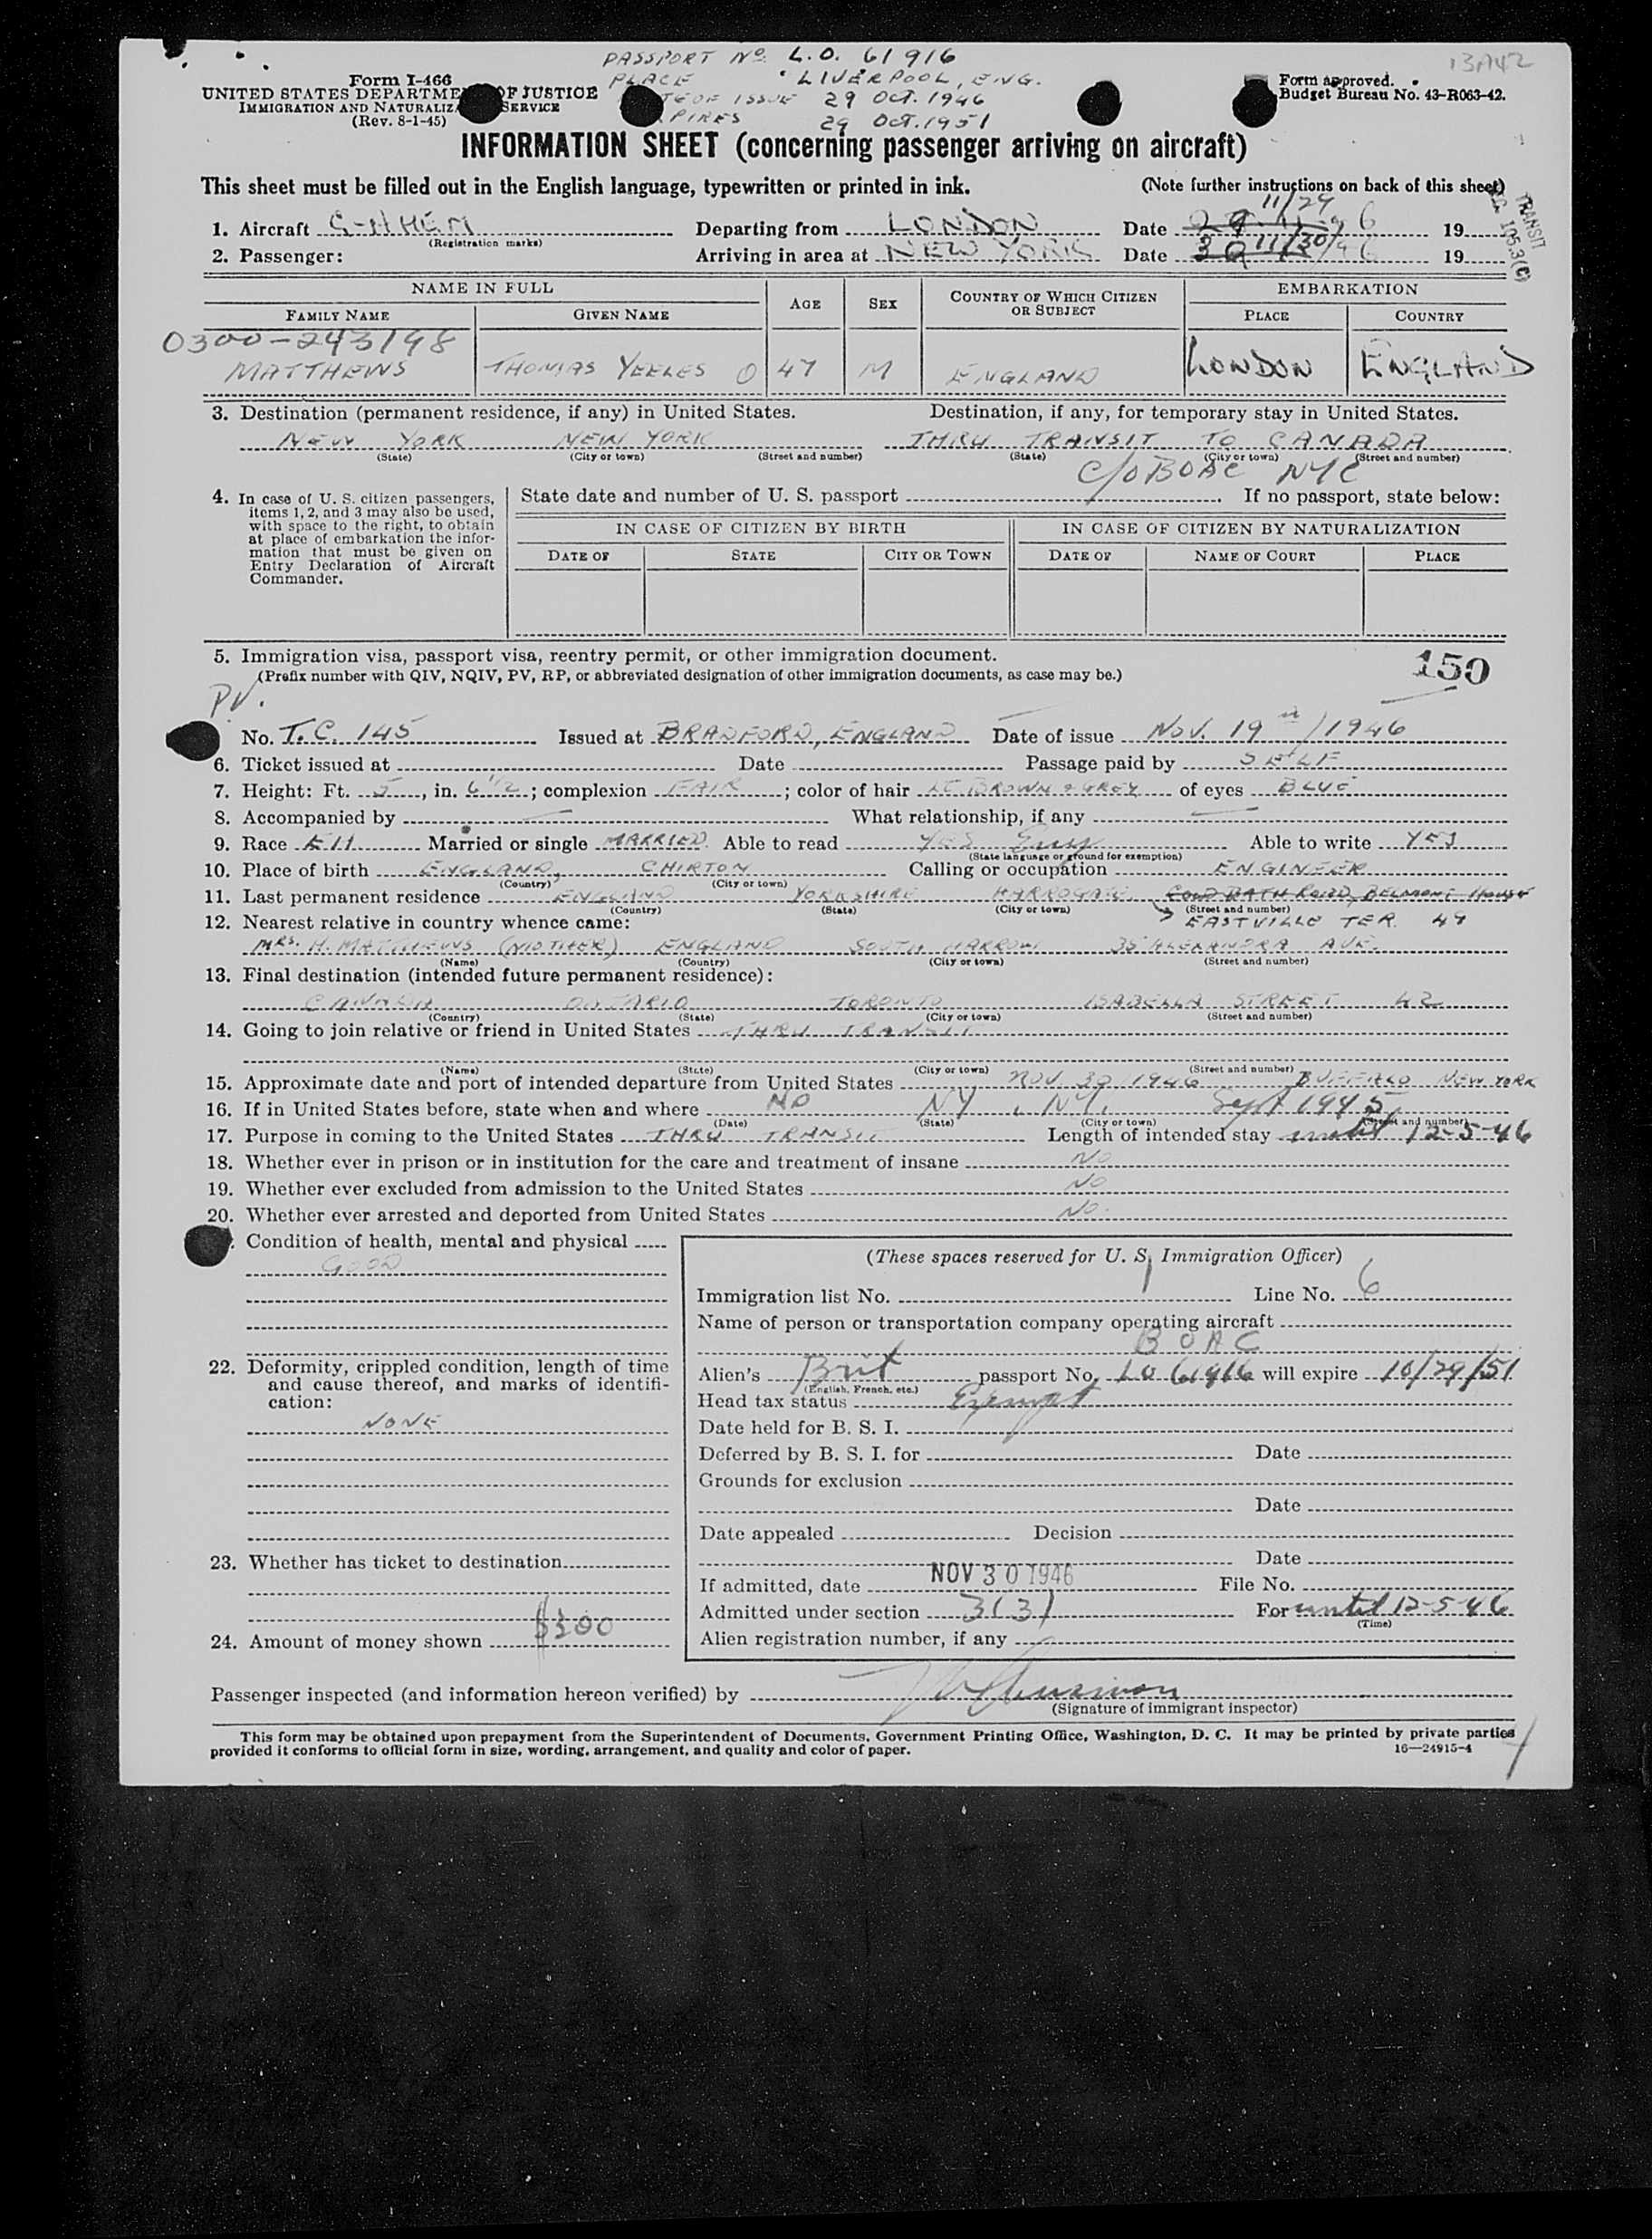 PASSPORT No. L.O. 61916
13A42
Form I-466
PLACE LIVERPOOL, ENG.
Form approved.
UNITED STATES DEPARTME OF JUSTICE
Budget Bureau No. 43-R063-42.
IMMIGRATION AND NATURALIZ SERVICE
TE OF ISSUE 29 OCT. 1946
(Rev. 8-1-45)
PIRES 29 OCT. 1951
INFORMATION SHEET (concerning passenger arriving on aircraft)
This sheet must be filled out in the English language, typewritten or printed in ink. (Note further instructions on back of this sheet)
TRANSIT
1. Aircraft G-AHEM Departing from LONDON Date 11/29 6 19
(Registration marks)
2. Passenger: Arriving in area at NEW YORK Date 11/30/46 19
NAME IN FULL AGE SEX COUNTRY OF WHICH CITIZEN OR SUBJECT EMBARKATION
FAMILY NAME GIVEN NAME PLACE COUNTRY
0300-243198
MATTHEWS THOMAS YEELES 0 47 M ENGLAND LONDON ENGLAND
3. Destination (permanent residence, if any) in United States. Destination, if any, for temporary stay in United States.
NEW YORK NEW YORK THRU TRANSIT TO CANADA
(State) (City or town) (Street and number) (State) (City or town) (Street and number)
C/O BOAC NYC
4. In case of U. S. citizen passengers, items 1, 2, and 3 may also be used, with space to the right, to obtain at place of embarkation the information that must be given on Entry Declaration of Aircraft Commander.
State date and number of U. S. passport If no passport, state below:
IN CASE OF CITIZEN BY BIRTH IN CASE OF CITIZEN BY NATURALIZATION
DATE OF STATE CITY OR TOWN DATE OF NAME OF COURT PLACE
5. Immigration visa, passport visa, reentry permit, or other immigration document. 150
(Prefix number with QIV, NQIV, PV, RP, or abbreviated designation of other immigration documents, as case may be.)
PV.
No. T.C. 145 Issued at BRADFORD, ENGLAND Date of issue NOV. 19th/1946
6. Ticket issued at Date Passage paid by SELF
7. Height: Ft. 5, in. 6 1/2; complexion FAIR; color of hair LT. BROWN & GREY of eyes BLUE
8. Accompanied by What relationship, if any
9. Race EN Married or single MARRIED. Able to read YES Eng Able to write YES
(State language or ground for exemption)
10. Place of birth ENGLAND, CHIRTON Calling or occupation ENGINEER
(Country) (City or town)
11. Last permanent residence ENGLAND YORKSHIRE HARROGATE, COLD BATH ROAD, BELMONT HOUSE
(Country) (State) (City or town) (Street and number)
12. Nearest relative in country whence came: EASTVILLE TER. 49
MRS. H. MATTHEWS (MOTHER) ENGLAND SOUTH HARROW 35 ALEXANDRA AVE.
(Name) (Country) (City or town) (Street and number)
13. Final destination (intended future permanent residence):
CANADA ONTARIO TORONTO ISABELLA STREET 42
(Country) (State) (City or town) (Street and number)
14. Going to join relative or friend in United States THRU TRANSIT
(Name) (State) (City or town) (Street and number)
15. Approximate date and port of intended departure from United States NOV. 30 1946 BUFFALO NEW YORK
16. If in United States before, state when and where NO NY, NY, Sept 1945
(Date) (State) (City or town) (Street and number)
17. Purpose in coming to the United States THRU TRANSIT Length of intended stay until 12-5-46
18. Whether ever in prison or in institution for the care and treatment of insane NO
19. Whether ever excluded from admission to the United States NO
20. Whether ever arrested and deported from United States NO.
Condition of health, mental and physical
GOOD
22. Deformity, crippled condition, length of time and cause thereof, and marks of identification:
NONE
23. Whether has ticket to destination
24. Amount of money shown $200
(These spaces reserved for U. S. Immigration Officer)
Immigration list No. 1 Line No. 6
Name of person or transportation company operating aircraft
BOAC
Alien's Brit passport No. LO 61916 will expire 10/29/51
(English, French, etc.)
Head tax status Exempt
Date held for B. S. I.
Deferred by B. S. I. for Date
Grounds for exclusion
Date
Date appealed Decision
Date
If admitted, date NOV 30 1946 File No.
Admitted under section 3(3) For until 12-5-46
(Time)
Alien registration number, if any
Passenger inspected (and information hereon verified) by
(Signature of immigrant inspector)
This form may be obtained upon prepayment from the Superintendent of Documents, Government Printing Office, Washington, D. C. It may be printed by private parties
provided it conforms to official form in size, wording, arrangement, and quality and color of paper. 16—24915-4